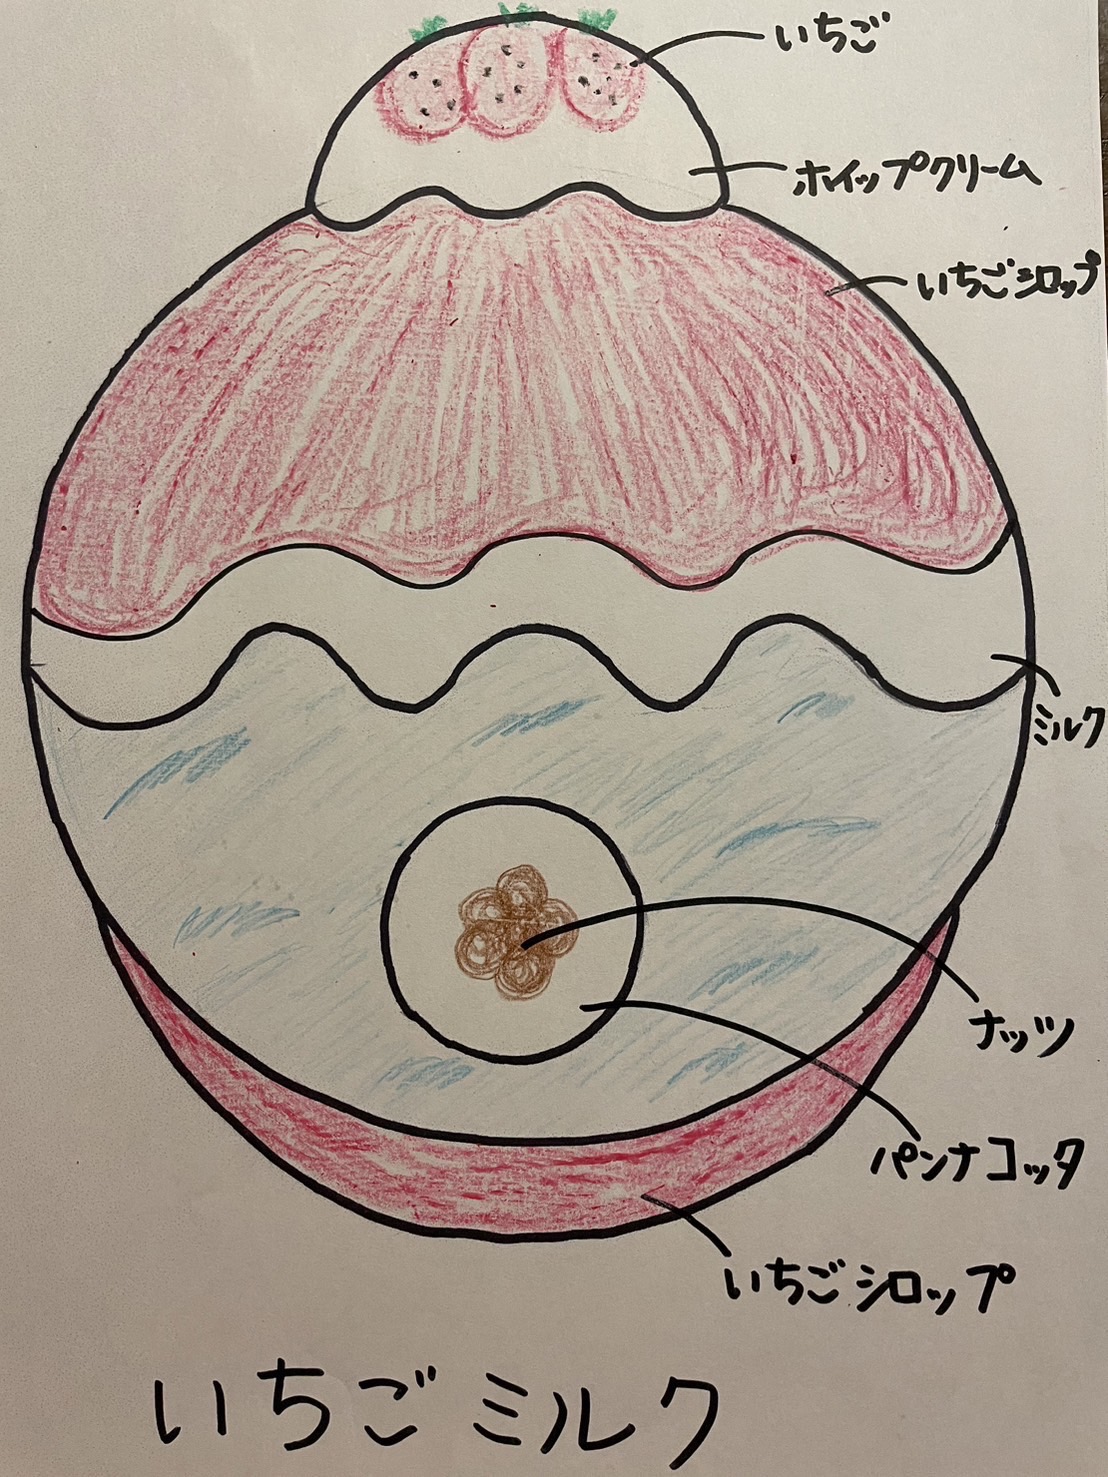 いちご
ホイップクリーム
いちごシロップ
ミルク
ナッツ
パンナコッタ
いちごシロップ
いちごミルク